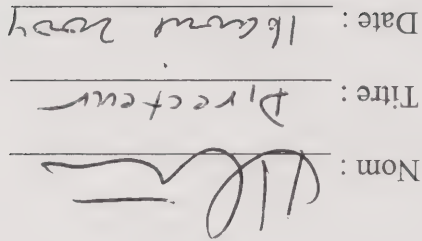 Nom :
Titre : Directeur
Date : 16 avril 2004